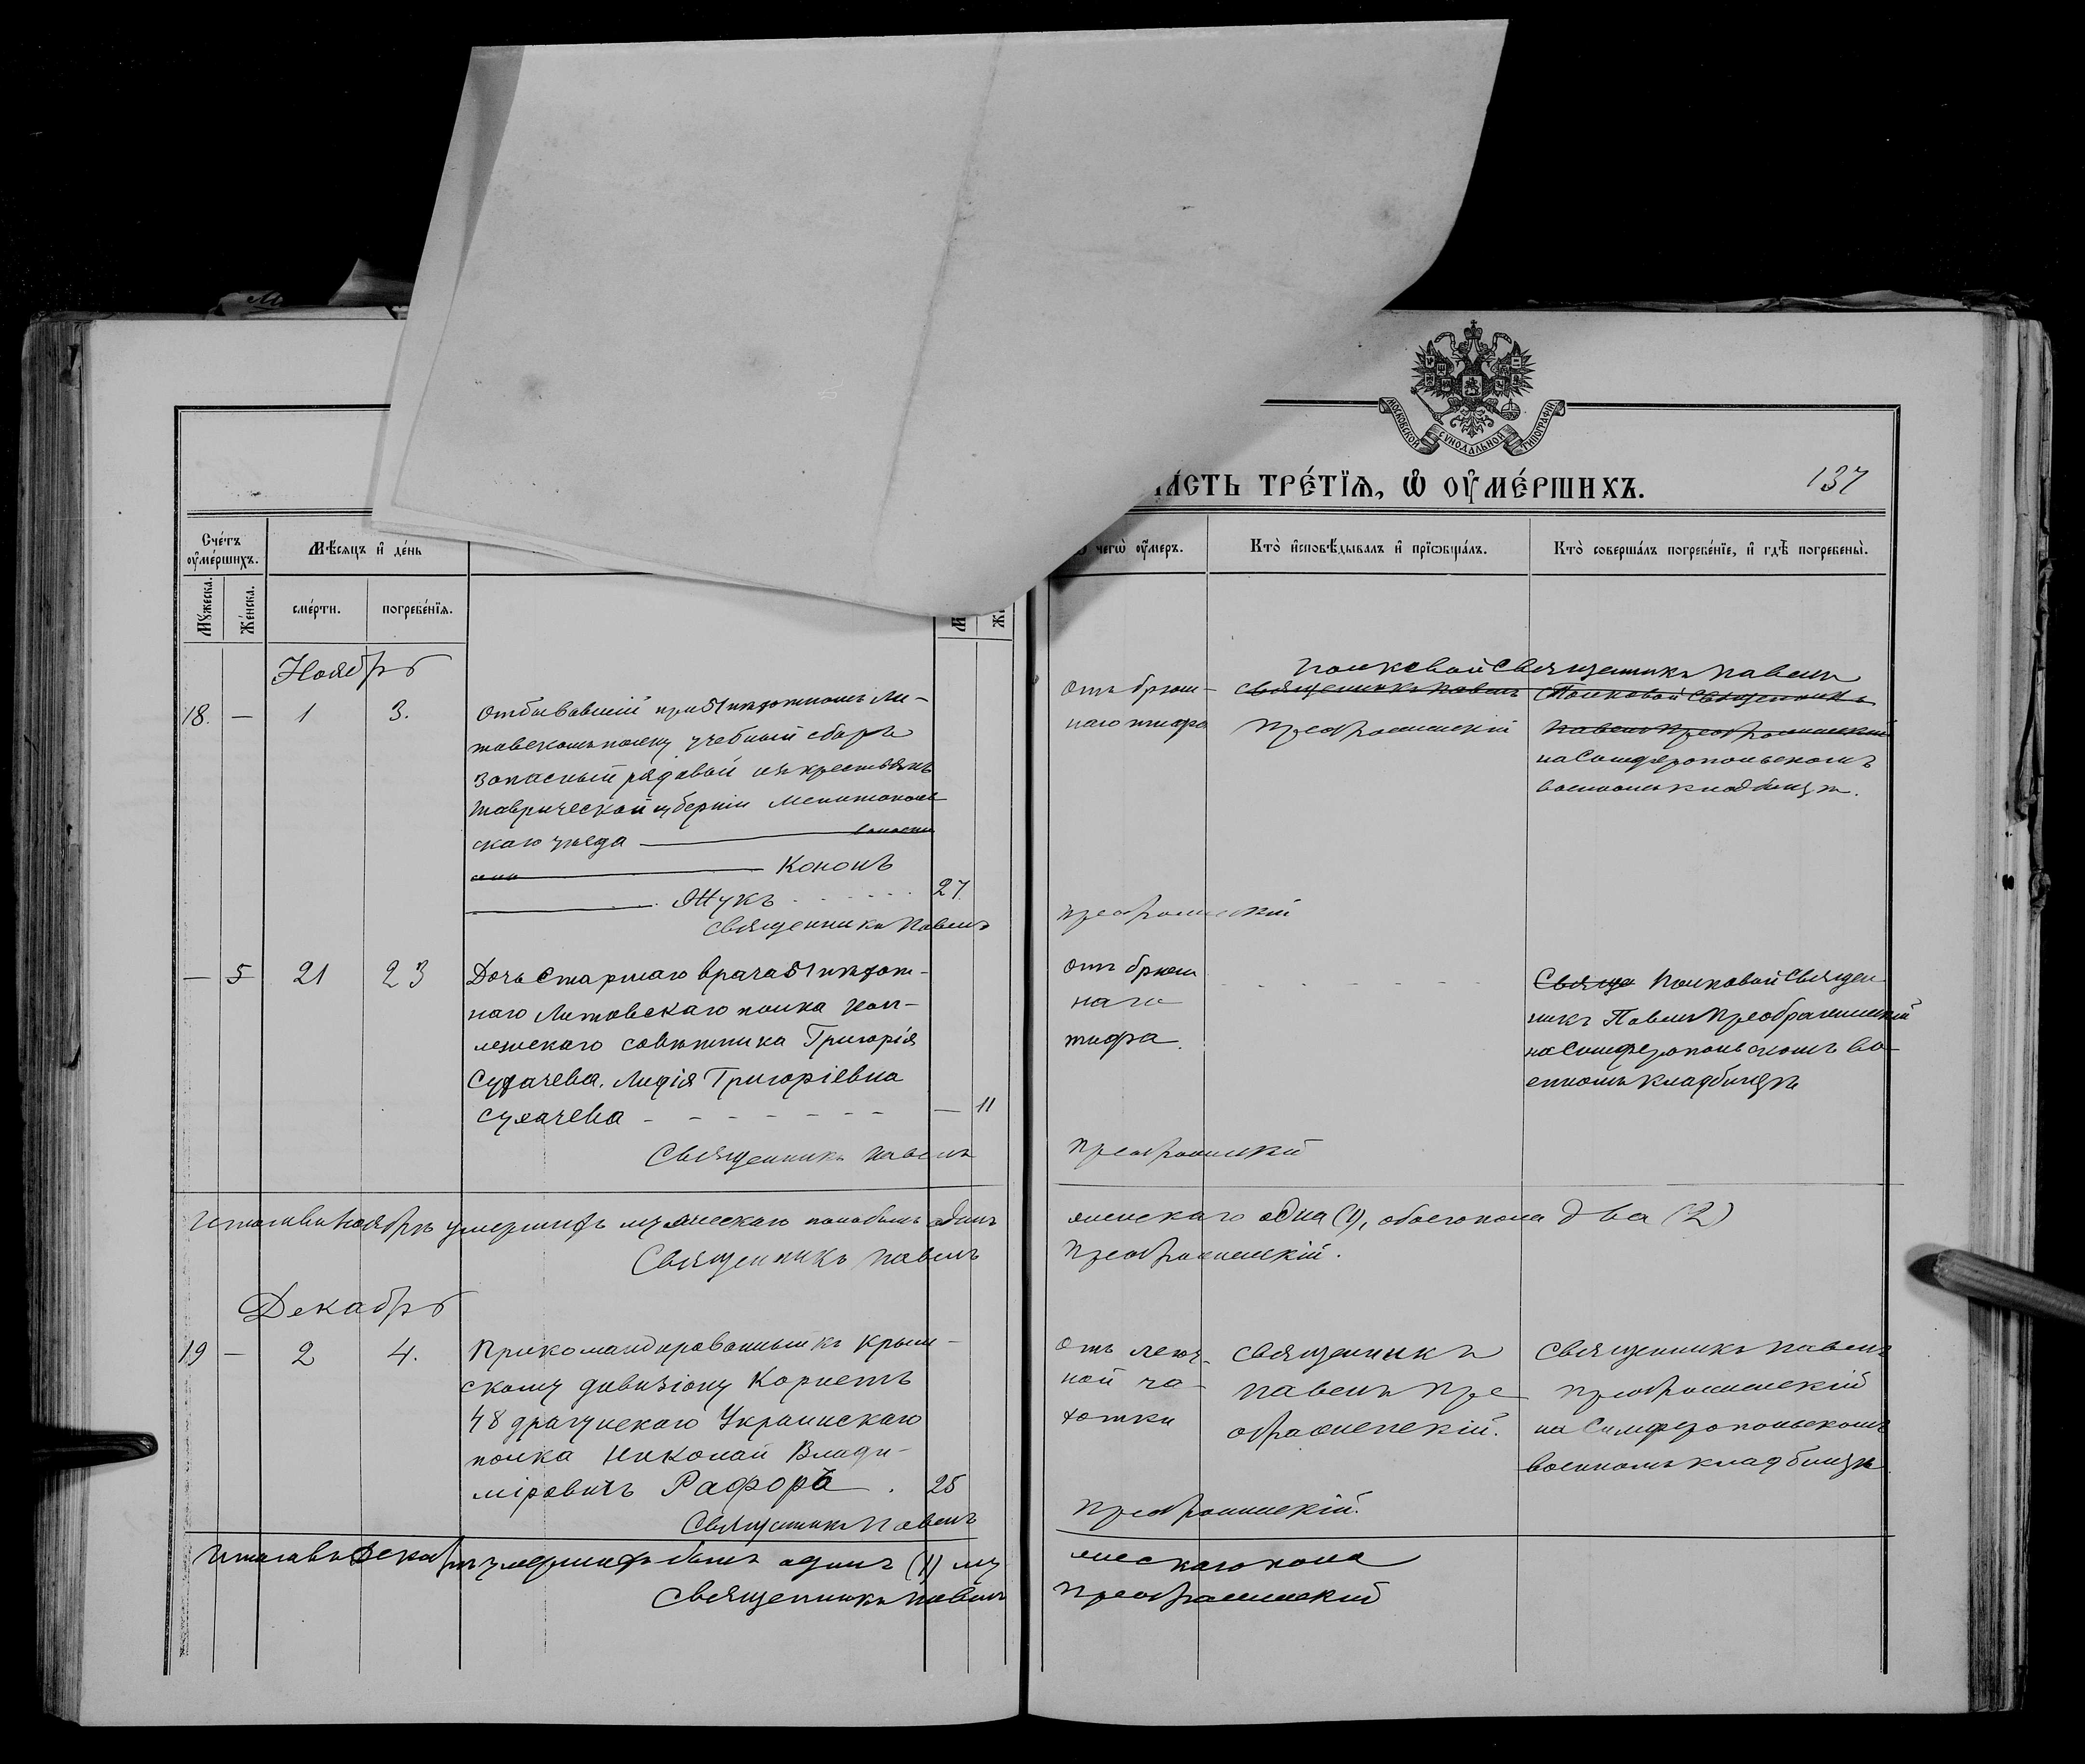 МОСКОВСКОЙ СѴНОДАЛЬНОЙ ТИПОГРАФІИ
ЧА́СТЬ ТРЕ́ТЇѦ, Ѡ҆ ОУ҆МЕ́РШИХЪ.
137
Сче́тъ оу҆ме́ршихъ.
Мѣ́сѧцъ и҆ де́нь
Мꙋ́жеска.
Же́нска.
сме́рти.
погребе́нїѧ.
чегѡ̀ оу҆́меръ.
Кто̀ и҆сповѣ́дывалъ и҆ прїѡбща́лъ.
Кто̀ соверша́лъ погребе́нїе, и҆ гдѣ̀ погребены̀.
Ноябрь
18. — 1 3.
Отбывавшій при 51 пѣхотномъ Ли-
товскомъ полку учебный сборъ
запасный рядовой изъ крестьянъ
Таврической губерніи Мелитополь
скаго уѣзда — волости
село — Кононъ
— Жукъ 27.
Священникъ Павелъ
Отъ брюш-
наго тифа
Полковой Священникъ Павелъ
священникъ Павелъ
Преображенскій
Полковой Священникъ
Павелъ Преображенскій
на Симферопольскомъ
военномъ кладбищѣ.
Преображенскій
— 5 21 23
Дочь Старшаго врача 51 пѣхот-
наго Литовскаго полка Кол-
лежскаго совѣтника Григорія
Сухачева, Лидія Григоріевна
Сухачева — 11
Священникъ Павелъ
Отъ брюш
наго
тифа.
Свяще Полковой Священ
никъ Павелъ Преображенскій
на Симферопольскомъ во-
енномъ кладбищѣ
Преображенскій
Итого въ Ноябрѣ умершихъ мужескаго пола былъ одинъ
женскаго одна (1), обоего пола два (2)
Священникъ Павелъ
Преображенскій.
Декабрь
19 — 2 4.
Прикомандированный къ Крым-
скому дивизіону Корнетъ
48 драгунскаго Украинскаго
полка Николай Влади-
міровичъ Рафоръ. 25
Священникъ Павелъ
Отъ легоч-
ной ча-
хотки
Священникъ
Павелъ Пре-
ображенскій.
Священникъ Павелъ
Преображенскій
на Симферопольскомъ
военномъ кладбищѣ
Преображенскій.
Итого въ Декабрѣ умершихъ былъ одинъ (1) му
жескаго пола
Священникъ Павелъ
Преображенскій